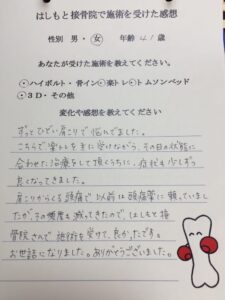 はしもと接骨院で施術を受けた感想
性別 男・女 年齢 41歳
あなたが受けた施術を教えてください。
・ハイボルト・骨イン・楽トレ・トムソンベッド
・3D・その他
変化や感想を教えてください
ずっとひどい肩こりで悩んでました。
こちらで楽トレを主に受けながら、その日の状態に
合わせた治療をして頂くうちに、症状も少しずつ
良くなってきました。
肩こりからくる頭痛で以前は頭痛薬に頼っていまし
たが、その頻度も減ってきたので、はしもと接
骨院さんで施術を受けて、良かったです。
お世話になりました。ありがとうございました。